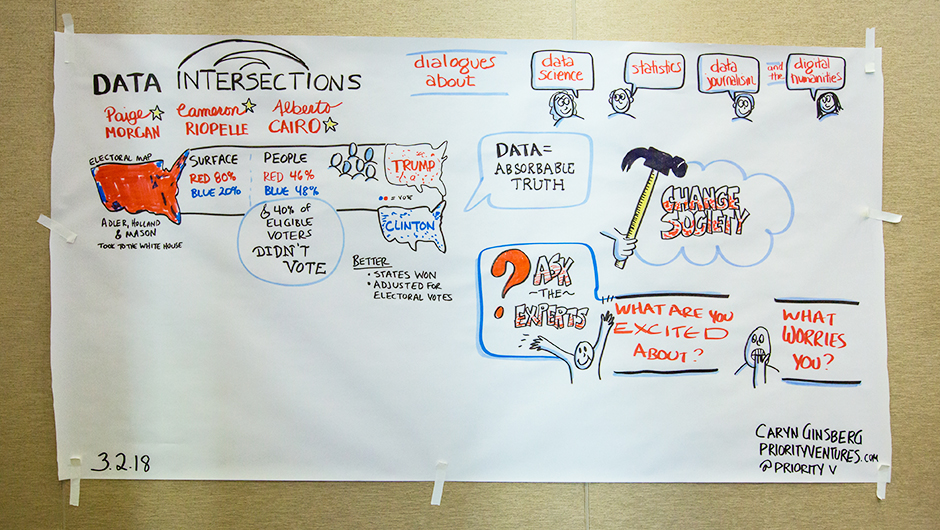 DATA INTERSECTIONS
Paige
MORGAN
Cameron
RIOPELLE
Alberto
CAIRO
dialogues
about
data
science
statistics
data
journalism
and the
digital
humanities
ELECTORAL MAP
ADLER, HOLLAND
& MASON
TOOK TO THE WHITE HOUSE
SURFACE
RED 80%
BLUE 20%
PEOPLE
RED 46%
BLUE 48%
& 40% OF
ELIGIBLE
VOTERS
DIDN'T
VOTE
TRUMP
= VOTE
CLINTON
BETTER
• STATES WON
• ADJUSTED FOR
ELECTORAL VOTES
DATA =
ABSORBABLE
TRUTH
CHANGE
SOCIETY
? ASK
~THE~
EXPERTS
WHAT ARE YOU
EXCITED
ABOUT?
WHAT
WORRIES
YOU?
3.2.18
CARYN GINSBERG
PRIORITYVENTURES.COM
@PRIORITYV